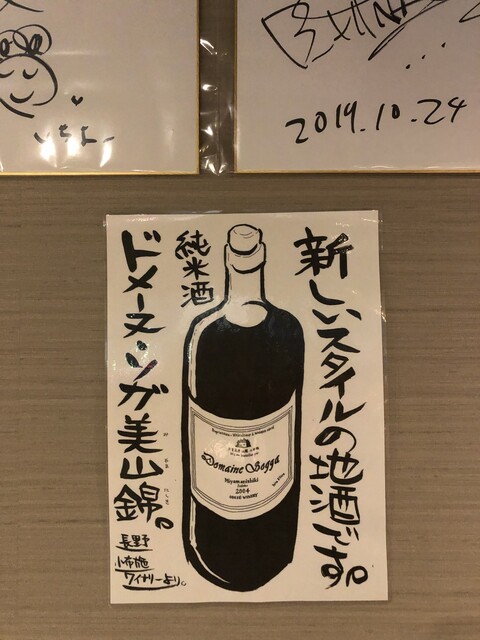 いちょー
2019.10.24
新しいスタイルの地酒です。
純米酒
ドメーヌソガ美山錦。
み やま にしき
長野
小布施
ワイナリーより。
Domaine Sogga
Miyamanishiki
2004
OBUSE WINERY